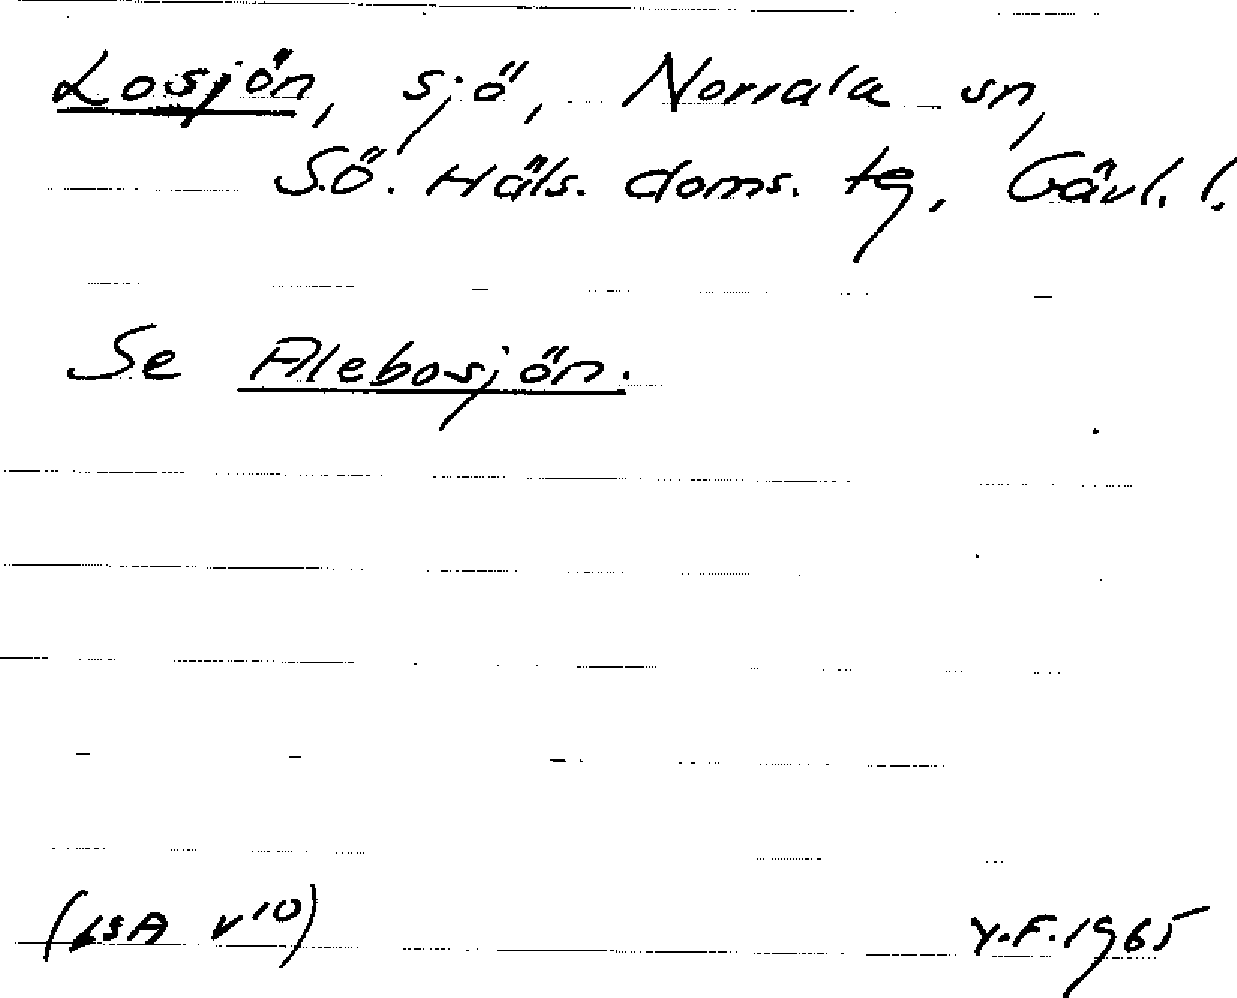 Losjön, sjö, Norrala sn,
Sö. Häls. doms. tg, Gävl. l.
Se Alebosjön.
(LSA V10) Y.F. 1965